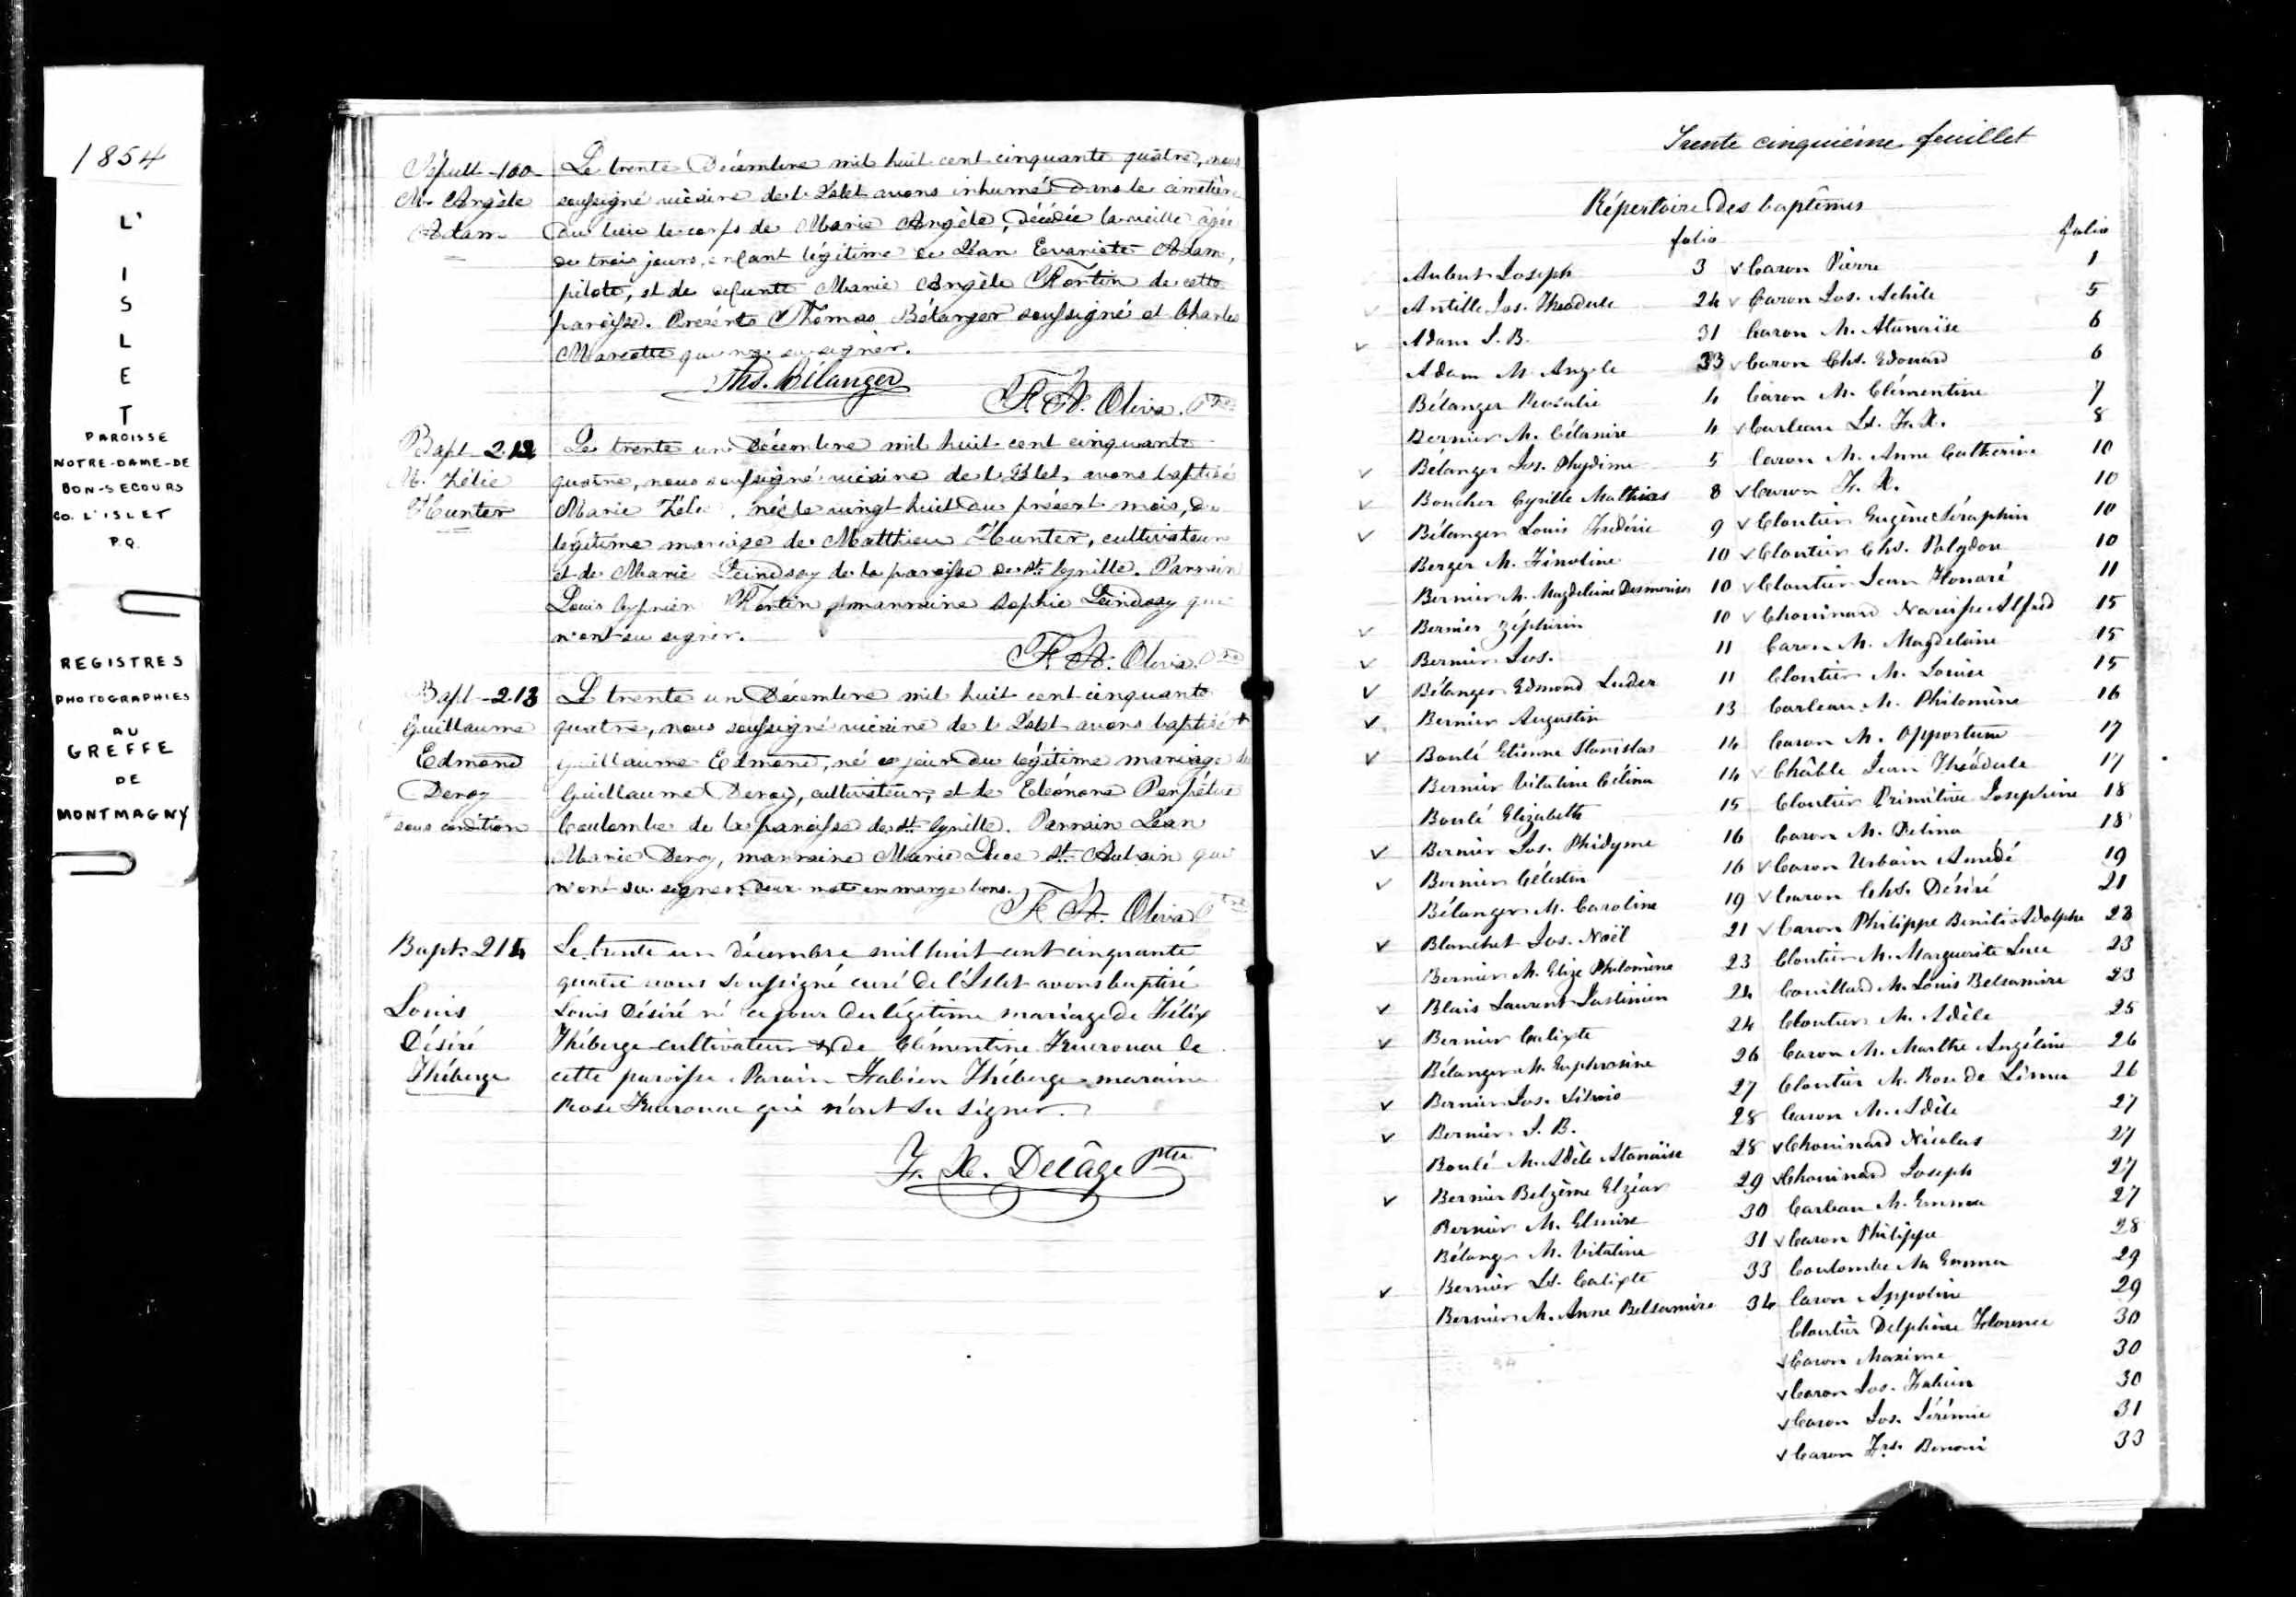 1854
L'
I
S
L
E
T
PAROISSE
NOTRE-DAME-DE
BON-SECOURS
CO. L'ISLET
P.Q.
REGISTRES
PHOTOGRAPHIES
AU
GREFFE
DE
MONTMAGNY
Sépult - 100
M. Angèle
Adam
Le trente Décembre mil huit cent cinquante quatre, nous
soussigné vicaire de l'Islet avons inhumé dans le cimetière
du lieu le corps de Marie Angèle, décédée la veille âgée
de trois jours, enfant légitime de Jean Evariste Adam,
pilote, et de défunte Marie Angèle Fortin de cette
paroisse. Présents Thomas Bélanger soussigné et Charles
Marcotte qui n'a su signer.
Ths. Bélanger
F. A. Oliva. Ptre
Bapt - 212
M. Zélie
Hunter
Le trente un Décembre mil huit cent cinquante
quatre, nous soussigné vicaire de l'Islet, avons baptisé
Marie Zélie, née le vingt huit du présent mois, du
légitime mariage de Matthieu Hunter, cultivateur
et de Marie Leindsay de la paroisse de St Cyrille. Parrain
Louis Cyprien Fortin, marraine Sophie Leindsay qui
n'ont su signer.
F. A. Oliva. Ptre
Bapt - 213
Guillaume
Edmond
Deroy
sous condition
Le trente un Décembre mil huit cent cinquante
quatre, nous soussigné vicaire de l'Islet avons baptisé +
Guillaume Edmond, né ce jour du légitime mariage de
Guillaume Deroy, cultivateur, et de Eléonore Perpétue
Coulombe de la paroisse de St Cyrille. Parrain Jean
Marie Deroy, marraine Marie Luce St Aubin qui
n'ont su signer. Deux mots en marge bons.
F. A. Oliva Ptre
Bapt. 214
Louis
Désiré
Théberge
Le trente un décembre mil huit cent cinquante
quatre nous soussigné curé de l'Islet avons baptisé
Louis Désiré né ce jour du légitime mariage de Félix
Théberge cultivateur & de Clémentine Fruerouac de
cette paroisse. Parain Fabien Théberge maraine
Rose Fruerouac qui n'ont su signer.
F. X. Delâge Ptre
Trente cinquième feuillet
Répertoire des baptêmes
folio folio
Aubut Joseph 3 Caron Pierre 1
Antille Jos. Théodule 24 Caron Jos. Achile 5
Adam J. B. 31 Caron M. Atanaïse 6
Adam M. Angèle 33 Caron Chs. Edouard 6
Bélanger Rosalie 4 Caron M. Clémentine 7
Bernier M. Célanire 4 Carleau Ls. F. X. 8
Bélanger Jos. Phydime 5 Caron M. Anne Catherine 10
Boucher Cyrille Mathias 8 Caron F. X. 10
Bélanger Louis Frédéric 9 Cloutier Eugène Séraphin 10
Berger M. Finoline 10 Cloutier Chs. Polydore 10
Bernier M. Magdeleine Desmerises 10 Cloutier Jean Honoré 11
Bernier Zéphirin 10 Chouinard Narcisse Alfred 15
Bernier Jos. 11 Caron M. Magdeleine 15
Bélanger Edmond Luder 11 Cloutier M. Louise 15
Bernier Augustin 13 Carleau M. Philomène 16
Boulé Etienne Stanislas 14 Caron M. Opportune 17
Bernier Vitaline Célina 14 Châble Jean Théodule 17
Boulé Elizabeth 15 Cloutier Primitive Josephine 18
Bernier Jos. Phidyme 16 Caron M. Delina 18
Bernier Célestin 16 Caron Urbain Amédé 19
Bélanger M. Caroline 19 Caron Chs. Désiré 21
Blanchet Jos. Noël 21 Caron Philippe Benitio Adolphe 23
Bernier M. Elize Philomène 23 Cloutier M. Marguerite Luce 23
Blais Laurent Justinien 24 Couillard M. Louis Belsamire 23
Bernier Calixte 24 Cloutier M. Adèle 25
Bélanger M. Euphrosine 26 Caron M. Marthe Angéline 26
Bernier Jos. 27 Cloutier M. Rose de Lima 26
Bernier J. B. 28 Caron M. Adèle 27
Boulé M. Adèle Atanaïse 28 Chouinard Nicolas 27
Bernier Belzème Elzéar 29 Chouinard Joseph 27
Bernier M. Elmire 30 Carbau M. Emma 27
Bélanger M. Vitaline 31 Caron Philippe 28
Bernier Ls. Calixte 33 Coulombe M. Emma 29
Bernier M. Anne Belsamire 34 Caron Appoline 29
Cloutier Delphine Florence 30
Caron Maxime 30
Caron Jos. Fabien 30
Caron Jos. Jérémie 31
Caron Frs. Benoni 33